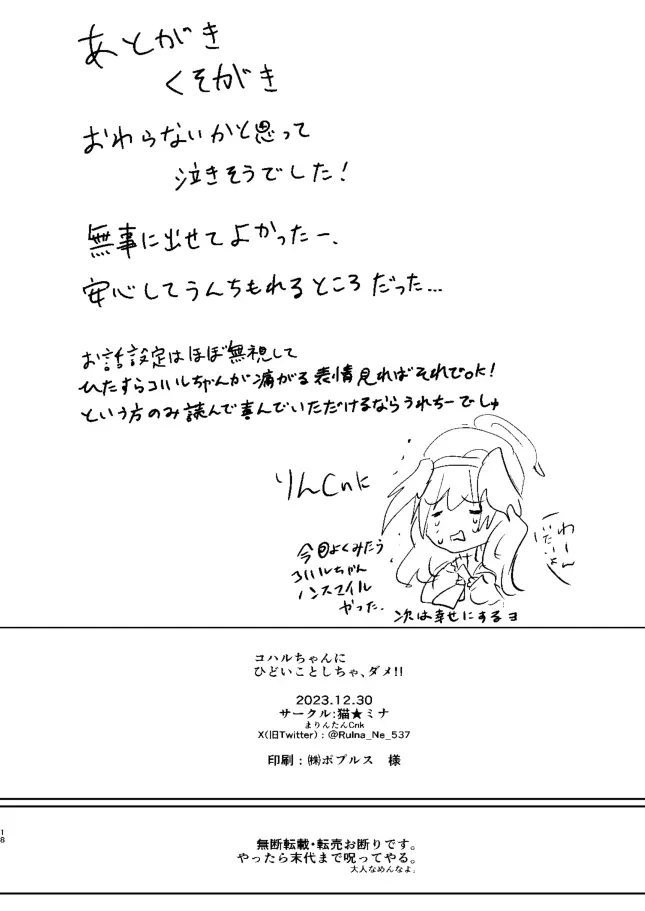 あとがき
くそがき
おわらないかと思って
泣きそうでした!
無事に出せてよかったー、
安心してうんちもれるところだった...
お話設定はほぼ無視して
ひたすらコハルちゃんが痛がる表情見ればそれでok!
という方のみ読んで喜んでいただけるならうれちーでしゅ
りんCnに
わーん
いたいよー
今回よくみたら
コハルちゃん
ノンスマイル
やった.
次は幸せにするヨ
コハルちゃんに
ひどいことしちゃ、ダメ!!
2023.12.30
サークル:猫★ミナ
まりんたんCnk
X(旧Twitter):@RuIna_Ne_537
印刷:㈱ポプルス 様
18
無断転載・転売お断りです。
やったら末代まで呪ってやる。
大人なめんなよ。